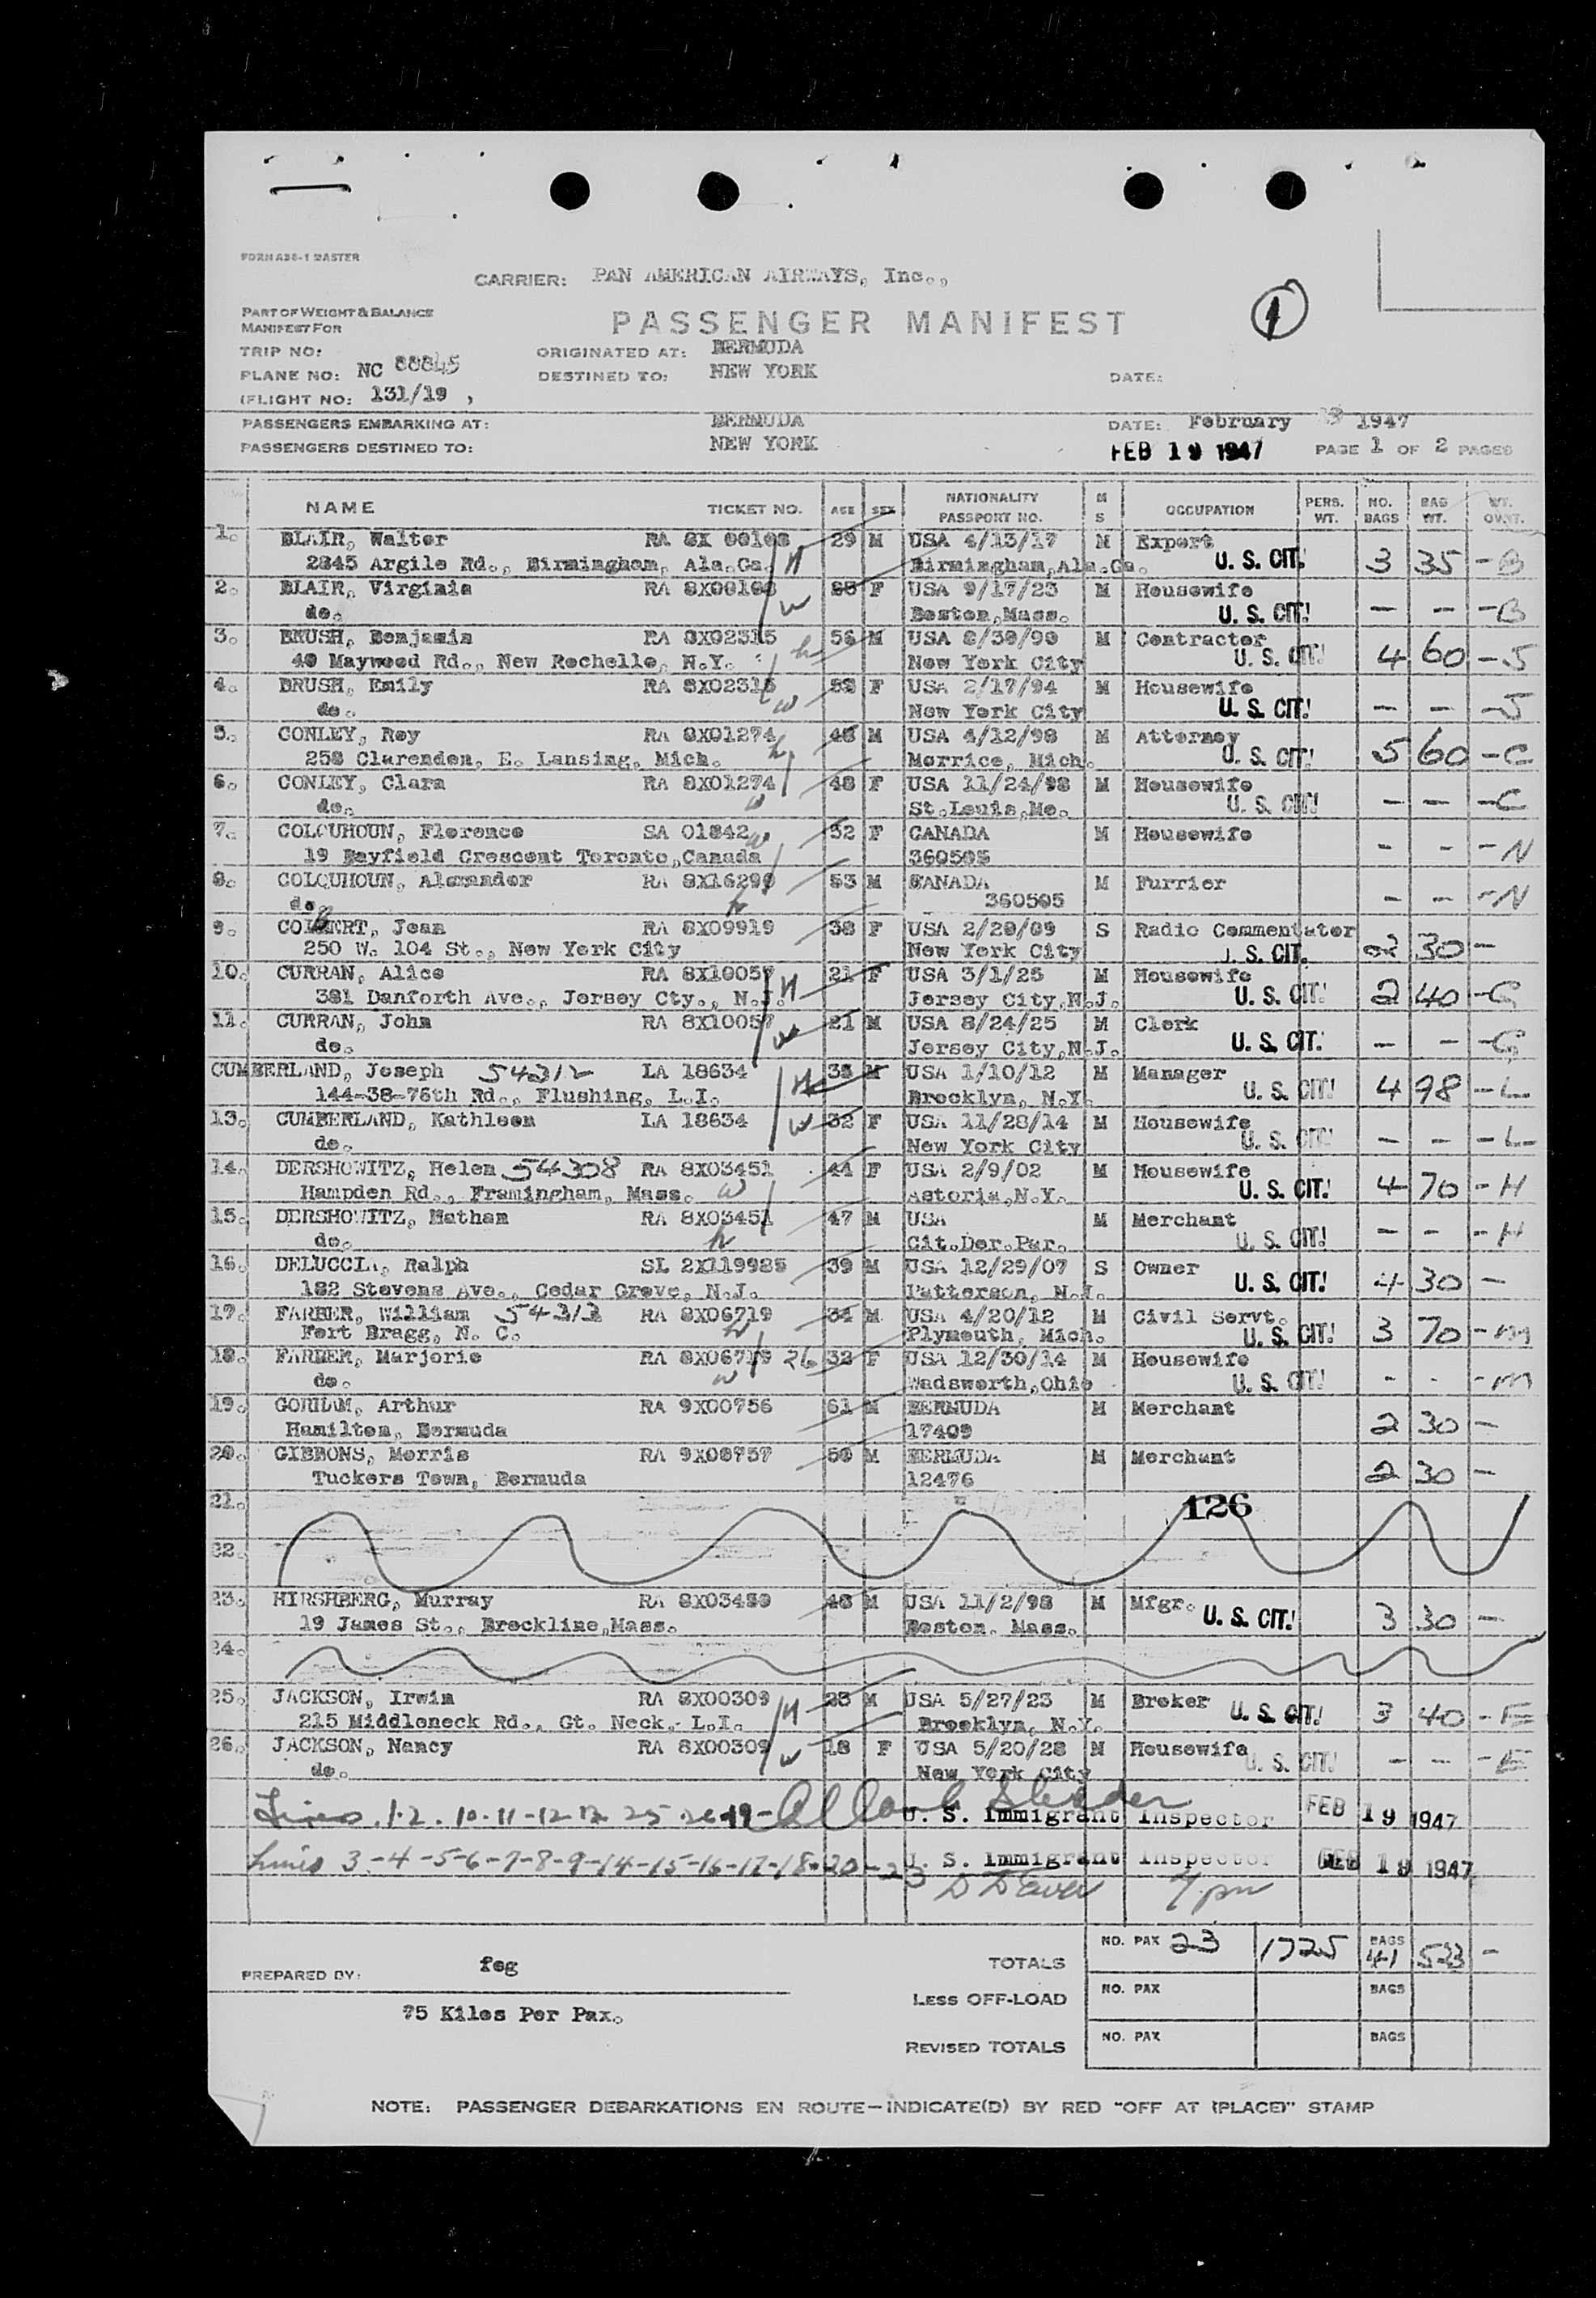 FORM A28-1 MASTER
CARRIER: PAN AMERICAN AIRWAYS, Inc.,
PART OF WEIGHT & BALANCE
MANIFEST FOR
PASSENGER MANIFEST
1
TRIP NO:
ORIGINATED AT: BERMUDA
PLANE NO: NC 88845
DESTINED TO: NEW YORK
DATE:
(FLIGHT NO: 131/19 ,
PASSENGERS EMBARKING AT: BERMUDA
DATE: February 1947
PASSENGERS DESTINED TO: NEW YORK
FEB 19 1947
PAGE 1 OF 2 PAGES
NAME TICKET NO. AGE SEX NATIONALITY PASSPORT NO. M S OCCUPATION PERS. WT. NO. BAGS BAG WT. WT. OVWT.
1. BLAIR, Walter RA 8X 00108 29 M USA 4/13/17 M Export
2845 Argile Rd., Birmingham, Ala.Ga. H Birmingham,Ala.Ga. U. S. CIT! 3 35 - B
2. BLAIR, Virginia RA 8X00108 F USA 9/17/23 M Housewife
do. W Boston,Mass. U. S. CIT! - - - B
3. BRUSH, Benjamin RA 8X02315 56 M USA 8/30/90 M Contractor
40 Maywood Rd., New Rochelle, N.Y. h New York City U. S. CIT! 4 60 - J
4. BRUSH, Emily RA 8X02315 F USA 2/17/94 M Housewife
do. w New York City U. S. CIT! - - - J
5. CONLEY, Roy RA 8X01274 48 M USA 4/12/98 M Attorney
258 Clarendon, E. Lansing, Mich. h Morrice, Mich. U. S. CIT! 5 60 - C
6. CONLEY, Clara RA 8X01274 48 F USA 11/24/98 M Housewife
do. w St.Louis,Mo. U. S. CIT! - - - C
7. COLQUHOUN, Florence SA 01842 w 52 F CANADA M Housewife
19 Bayfield Crescent Toronto,Canada 360505 - - - N
8. COLQUHOUN, Alexander RA 8X16299 53 M CANADA M Furrier
do. h 360505 - - - N
9. COLBERT, Jean RA 8X09919 38 F USA 2/20/09 S Radio Commentator
250 W. 104 St., New York City New York City U. S. CIT. 2 30 -
10. CURRAN, Alice RA 8X10057 21 F USA 3/1/25 M Housewife
381 Danforth Ave., Jersey Cty., N.J. H Jersey City,N.J. U. S. CIT! 2 40 - G
11. CURRAN, John RA 8X10057 21 M USA 8/24/25 M Clerk
do. w Jersey City,N.J. U. S. CIT. - - - G
CUMBERLAND, Joseph 54312 LA 18634 35 M USA 1/10/12 M Manager
144-38-76th Rd., Flushing, L.I. H Brooklyn, N.Y. U. S. CIT! 4 98 - L
13. CUMBERLAND, Kathleen LA 18634 32 F USA 11/28/14 M Housewife
do. W New York City U. S. CIT! - - - L
14. DERSHOWITZ, Helen 54308 RA 8X03451 44 F USA 2/9/02 M Housewife
Hampden Rd., Framingham, Mass. w Astoria,N.Y. U. S. CIT! 4 70 - H
15. DERSHOWITZ, Nathan RA 8X03451 47 M USA M Merchant
do. h Cit.Der.Par. U. S. CIT! - - - H
16. DELUCCIA, Ralph SL 2X119985 39 M USA 12/29/07 S Owner
182 Stevens Ave., Cedar Grove, N.J. Patterson, N.J. U. S. CIT! 4 30 -
17. FARBER, William 54313 RA 8X06719 34 M USA 4/20/12 M Civil Servt.
Fort Bragg, N. C. h Plymouth, Mich. U. S. CIT! 3 70 - M
18. FARBER, Marjorie RA 8X06719 26 32 F USA 12/30/14 M Housewife
do. w Wadsworth,Ohio U. S. CIT! - - - M
19. GORHAM, Arthur RA 9X00756 61 M BERMUDA M Merchant
Hamilton, Bermuda 17409 2 30 -
20. GIBBONS, Morris RA 9X00757 50 M BERMUDA M Merchant
Tuckers Town, Bermuda 12476 2 30 -
21. 126
22.
23. HIRSHBERG, Murray RA 8X03480 48 M USA 11/2/98 M Mfgr.
19 James St., Brockline,Mass. Boston. Mass. U. S. CIT! 3 30 -
24.
25. JACKSON, Irwin RA 8X00309 23 M USA 5/27/23 M Broker
215 Middleneck Rd., Gt. Neck, L.I. H Brooklyn, N.Y. U. S. CIT! 3 40 - E
26. JACKSON, Nancy RA 8X00309 18 F USA 5/20/28 M Housewife
do. W New York City U. S. CIT! - - - E
Lines 1-2. 10-11-12-13 25 26-19- U. S. Immigrant Inspector FEB 19 1947
Lines 3-4-5-6-7-8-9-14-15-16-17-18-20-23 U. S. Immigrant Inspector FEB 19 1947
7 pm
TOTALS NO. PAX 23 1725 BAGS 41 523 -
PREPARED BY: feg
LESS OFF-LOAD NO. PAX BAGS
75 Kilos Per Pax.
REVISED TOTALS NO. PAX BAGS
NOTE: PASSENGER DEBARKATIONS EN ROUTE—INDICATE(D) BY RED "OFF AT (PLACE)" STAMP